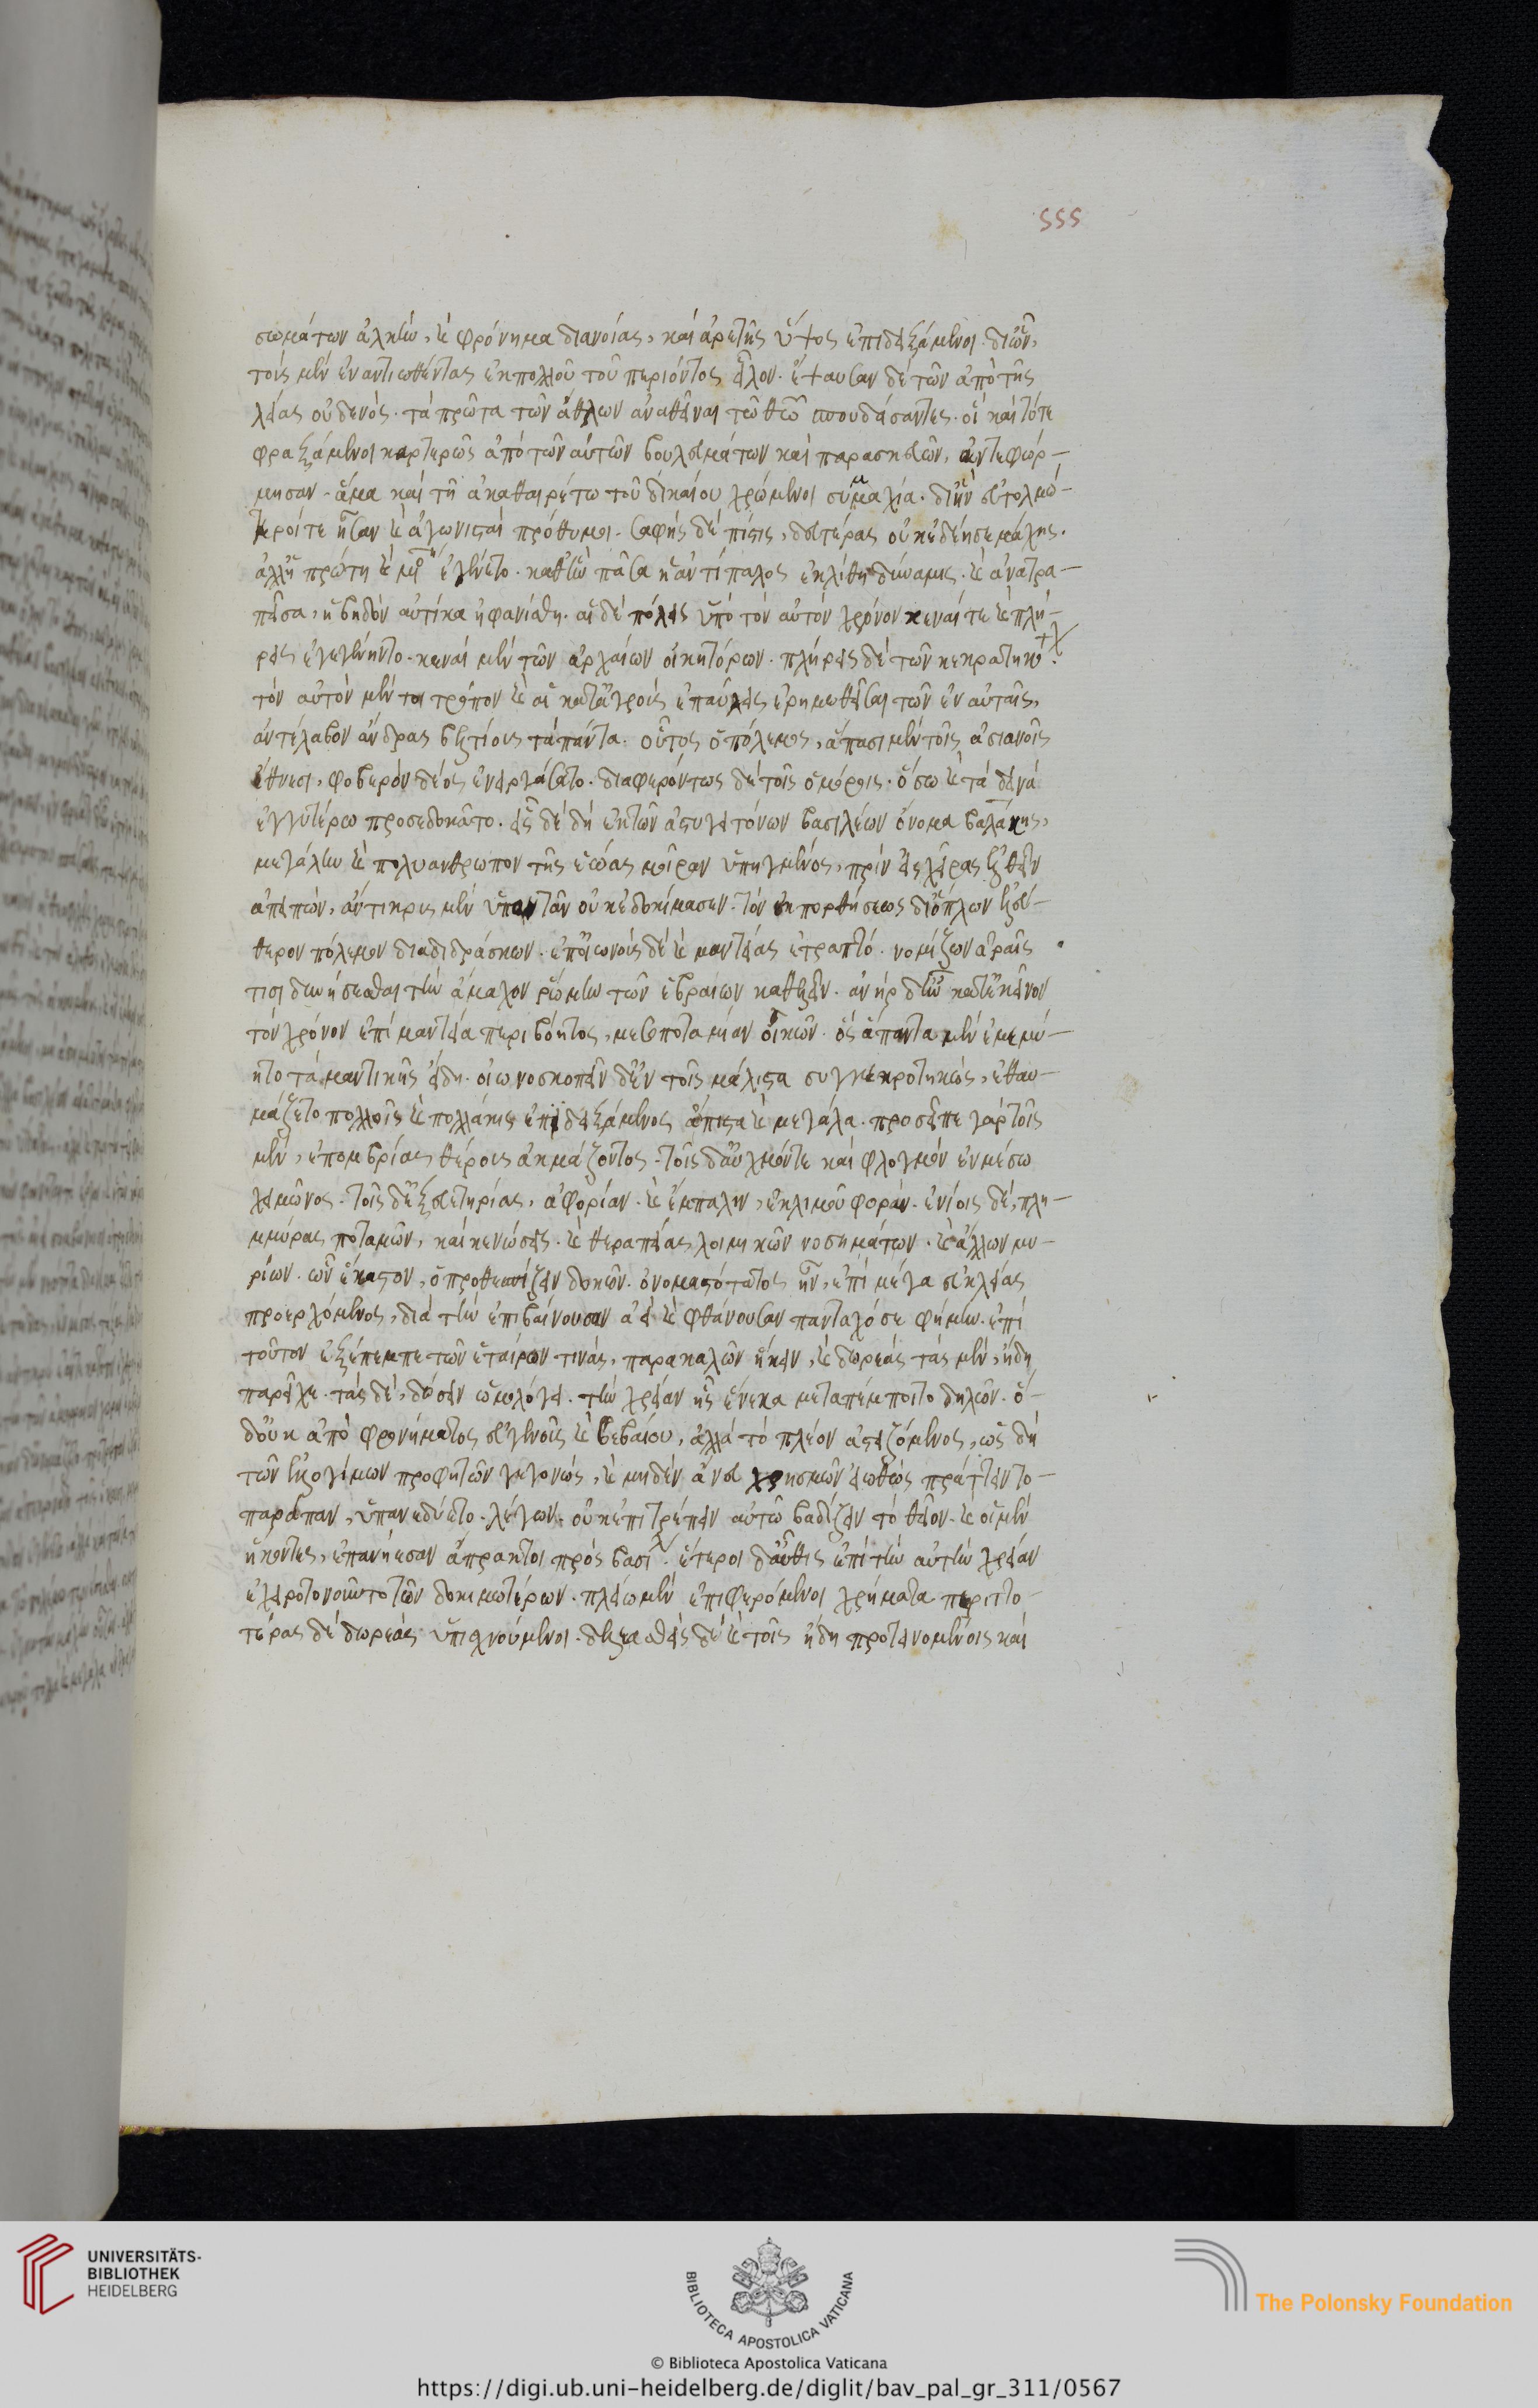 555
σωμάτων ἀλκὴν, καὶ φρόνημα διανοίας, καὶ ἀρετῆς ὕψος ἐπιδειξάμενοι. δι' ὧν,
τοὺς μὲν ἐναντιωθέντας ἐκ πολλοῦ τοῦ περιόντος εἷλον. ἔψαυσαν δὲ τῶν ἀπὸ τῆς
λείας οὐδενὸς. τὰ πρῶτα τῶν ἄθλων ἀναθεῖναι τῶ θεῶ σπουδάσαντες. οἳ καὶ τότε
φραξάμενοι καρτερῶς ἀπὸ τῶν αὐτῶν βουλευμάτων καὶ παρασκευῶν, ἀντεφώρ-
μησαν. ἅμα καὶ τῆ ἀκαθαιρέτω τοῦ δικαίου χρώμενοι συμμαχία. δι' ἣν εὐτολμό-
τεροί τε ἦσαν καὶ ἀγωνισταὶ πρόθυμοι. σαφὴς δὲ πίστις, δευτέρας οὐκ ἐδέησε μάχης.
ἀλλ' ἡ πρώτη καὶ μόνη ἐγένετο. καθ' ἣν πᾶσα ἡ ἀντίπαλος ἐκλίθη δύναμις. καὶ ἀνατρα-
πεῖσα, ἡβηδὸν αὐτίκα ἠφανίσθη. αἱ δὲ πόλεις ὑπὸ τὸν αὐτὸν χρόνον κεναί τε καὶ πλή-
ρεις ἐγεγένηντο. κεναὶ μὲν τῶν ἀρχαίων οἰκητόρων. πλήρεις δὲ τῶν κεκρατηκό:
τὸν αὐτὸν μέν τοι τρόπον καὶ αἱ κατ' ἀγροὺς ἐπαύλεις ἐρημωθεῖσαι τῶν ἐν αὐταῖς,
ἀντέλαβον ἄνδρας βελτίους τὰ πάντα. οὗτος ὁ πόλεμος, ἅπασι μὲν τοῖς ἀσιανοῖς
ἔθνεσι, φοβερὸν δέος ἐνειργάσατο. διαφερόντως δὲ τοῖς ὁμόροις. ὅσω καὶ τὰ δεινὰ
ἐγγυτέρω προσεδοκᾶτο. εἷς δὲ δὴ ἐκ τῶν ἀστυγειτόνων βασιλέων ὄνομα βαλάκης,
μεγάλην καὶ πολυάνθρωπον τῆς ἑώας μοῖραν ὑπηγμένος, πρὶν εἰς χεῖρας ἐλθεῖν
ἀπειπὼν, ἄντικρυς μὲν ὑπαντᾶν οὐκ ἐδοκίμασεν. τὸν ἐκ πορθήσεως δι' ὅπλων ἐλεύ-
θερον πόλεμον διαδιδράσκων. ἐπ' οἰωνοὺς δὲ καὶ μαντείας ἐτράπετο. νομίζων ἀραῖς
τισὶ δυνήσεσθαι τὴν ἄμαχον ῥώμην τῶν ἑβραίων καθελεῖν. ἀνὴρ δ' ἦν κατ' ἐκεῖνον
τὸν χρόνον ἐπὶ μαντεία περιβόητος, μεσοποταμίαν οἰκῶν. ὃς ἅπαντα μὲν ἐμεμύ-
ητο τὰ μαντικῆς εἴδη. οἰωνοσκοπεῖν δ' ἐν τοῖς μάλιστα συγκεκροτηκὼς, ἐθαυ-
μάζετο πολλοῖς καὶ πολλάκις ἐπιδειξάμενος ἄπιστα καὶ μεγάλα. προσεῖπε γὰρ τοῖς
μὲν, ἐπομβρίας θέρους ἀκμάζοντος. τοῖς δ' αὐχμόν τε καὶ φλογμὸν ἐν μέσω
χειμῶνος. τοῖς δ' ἐξ εὐετηρίας, ἀφορίαν. καὶ ἔμπαλιν, ἐκ λιμοῦ φοράν. ἐνίοις δὲ, πλη-
μμύρας ποταμῶν, καὶ κενώσεις. καὶ θεραπείας λοιμικῶν νοσημάτων. καὶ ἄλλων μυ-
ρίων. ὧν ἕκαστον, ὁ προθεσπίζειν δοκῶν. ὀνομαστότατος ἦν, ἐπὶ μέγα εὐκλείας
προερχόμενος, διὰ τὴν ἐπιβαίνουσαν ἀεὶ καὶ φθάνουσαν πανταχόσε φήμην. ἐπὶ
τοῦτον ἐξέπεμπε τῶν ἑταίρων τινὰς, παρακαλῶν ἥκειν, καὶ δωρεὰς τὰς μὲν, ἤδη
παρεῖχε. τὰς δὲ, δώσειν ὡμολόγει. τὴν χρείαν ἧς ἕνεκα μεταπέμποιτο δηλῶν. ὁ
δ' οὐκ ἀπὸ φρονήματος εὐγενοῦς καὶ βεβαίου, ἀλλὰ τὸ πλέον ἀστεϊζόμενος, ὡς δὴ
τῶν ἐλλογίμων προφητῶν γεγονὼς, καὶ μηδὲν ἄνευ χρησμῶν εἰωθὼς πράττειν το-
παράπαν, ὑπανεδύετο. λέγων, οὐκ ἐπιτρέπειν αὐτῶ βαδίζειν τὸ θεῖον. καὶ οἱ μὲν
ἥκοντες, ἐπανήεσαν ἄπρακτοι πρὸς βασιλ. ἕτεροι δ' αὖθις ἐπὶ τὴν αὐτὴν χρείαν
ἐχειροτονοῦντο τῶν δοκιμωτέρων. πλείω μὲν ἐπιφερόμενοι χρήματα περιττο-
τέρας δὲ δωρεὰς ὑπισχνούμενοι. δελεασθεὶς δὲ καὶ τοῖς ἤδη προτεινομένοις καὶ
UNIVERSITÄTS-
BIBLIOTHEK
HEIDELBERG
BIBLIOTECA APOSTOLICA VATICANA
The Polonsky Foundation
© Biblioteca Apostolica Vaticana
https://digi.ub.uni-heidelberg.de/diglit/bav_pal_gr_311/0567